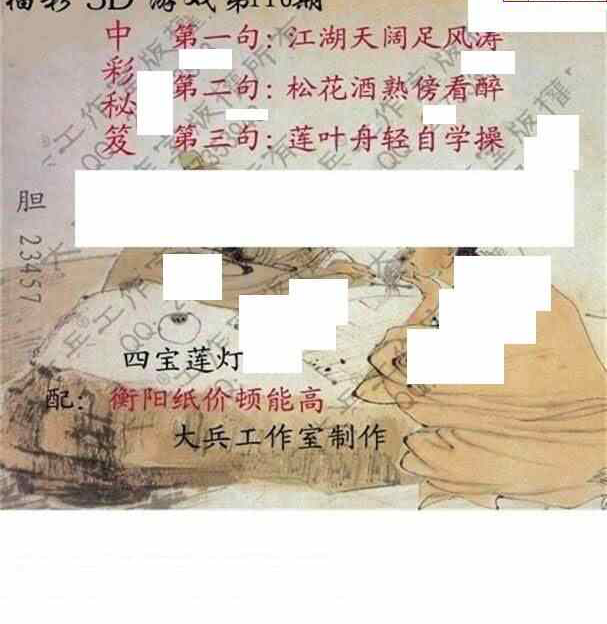 福彩 3D 游戏第116期
中彩秘笈
第一句：江湖天阔足风涛
第二句：松花酒熟傍看醉
第三句：莲叶舟轻自学操
胆 23457
四宝莲灯
配：衡阳纸价顿能高
大兵工作室制作